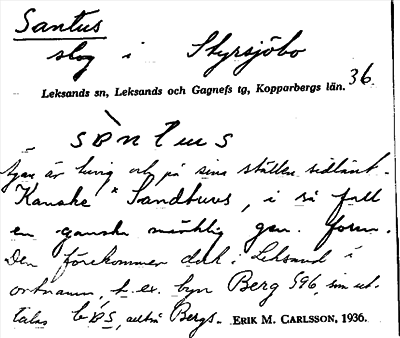 Santus
slog i Styrsjöbo
Leksands sn, Leksands och Gagnefs tg, Kopparbergs län. 36.
sàntus
Ägan är kuvig och på sina ställen sidlänt.
Kanske * Sandburs, i så fall
en ganska märklig gen. form.
Den förekommer dock i Leksand i
ortnamn, t. ex. byn Berg 596, som ut-
talas bǽs, alltså Bergs. ERIK M. CARLSSON, 1936.